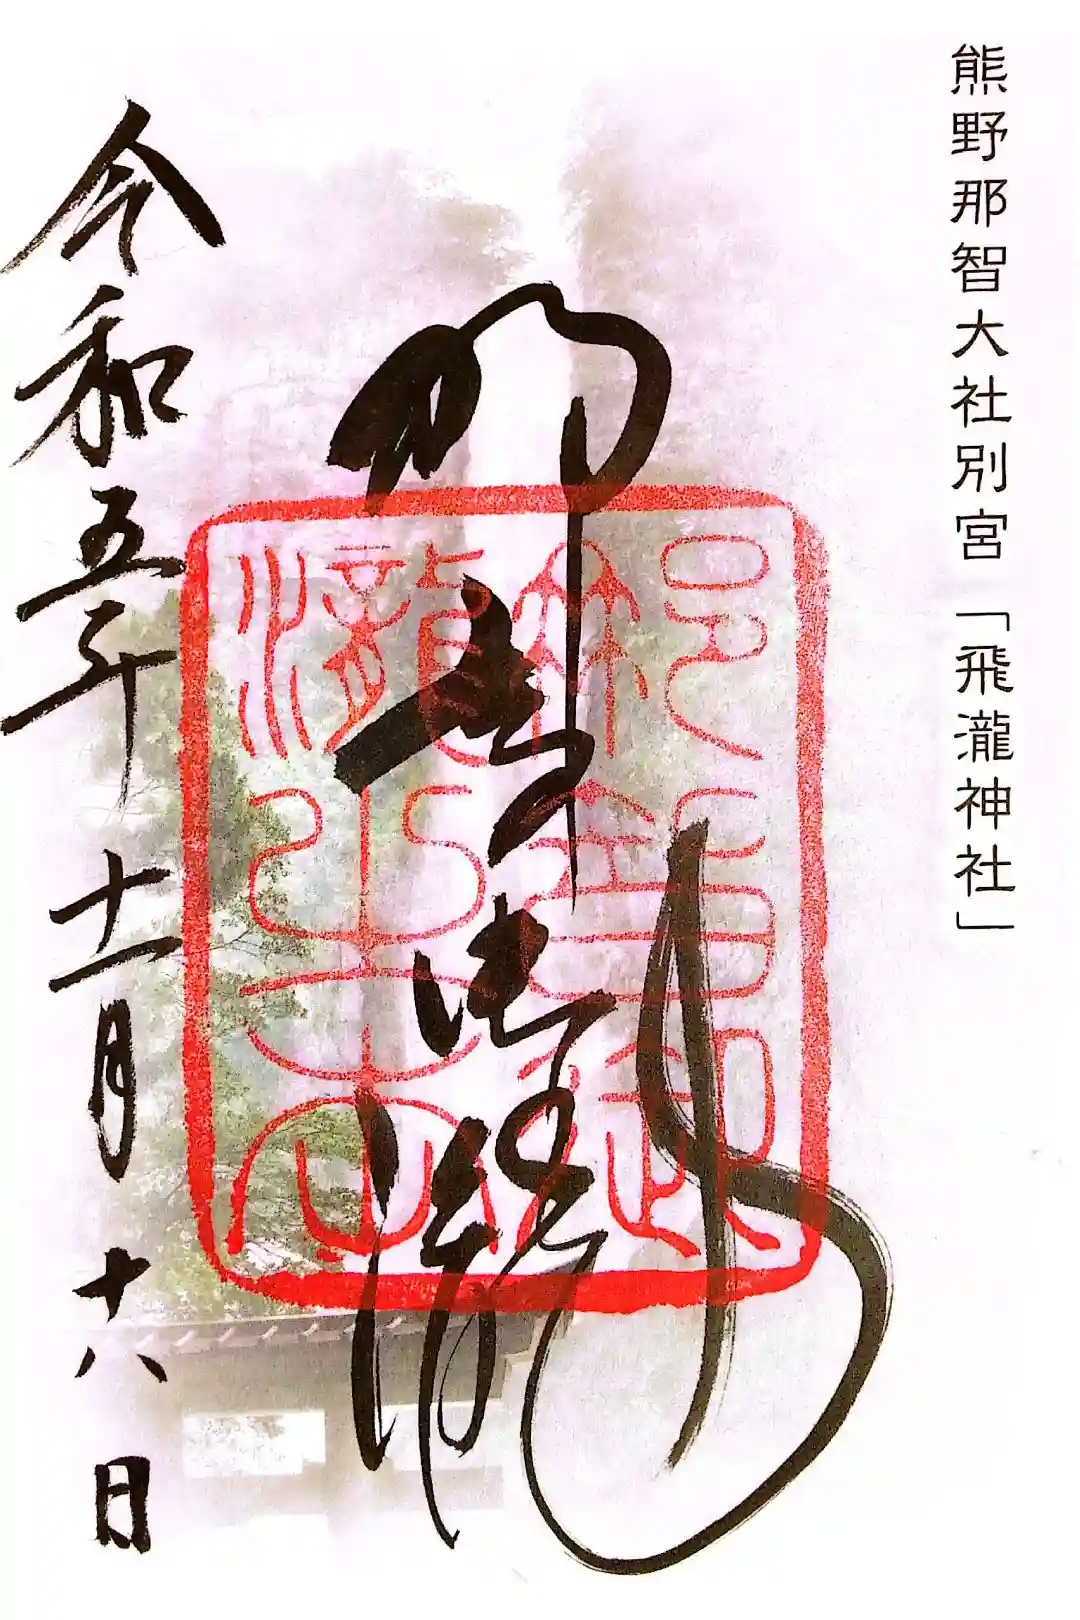 熊野那智大社別宮「飛瀧神社」
那智御瀧
令和五年十二月十八日